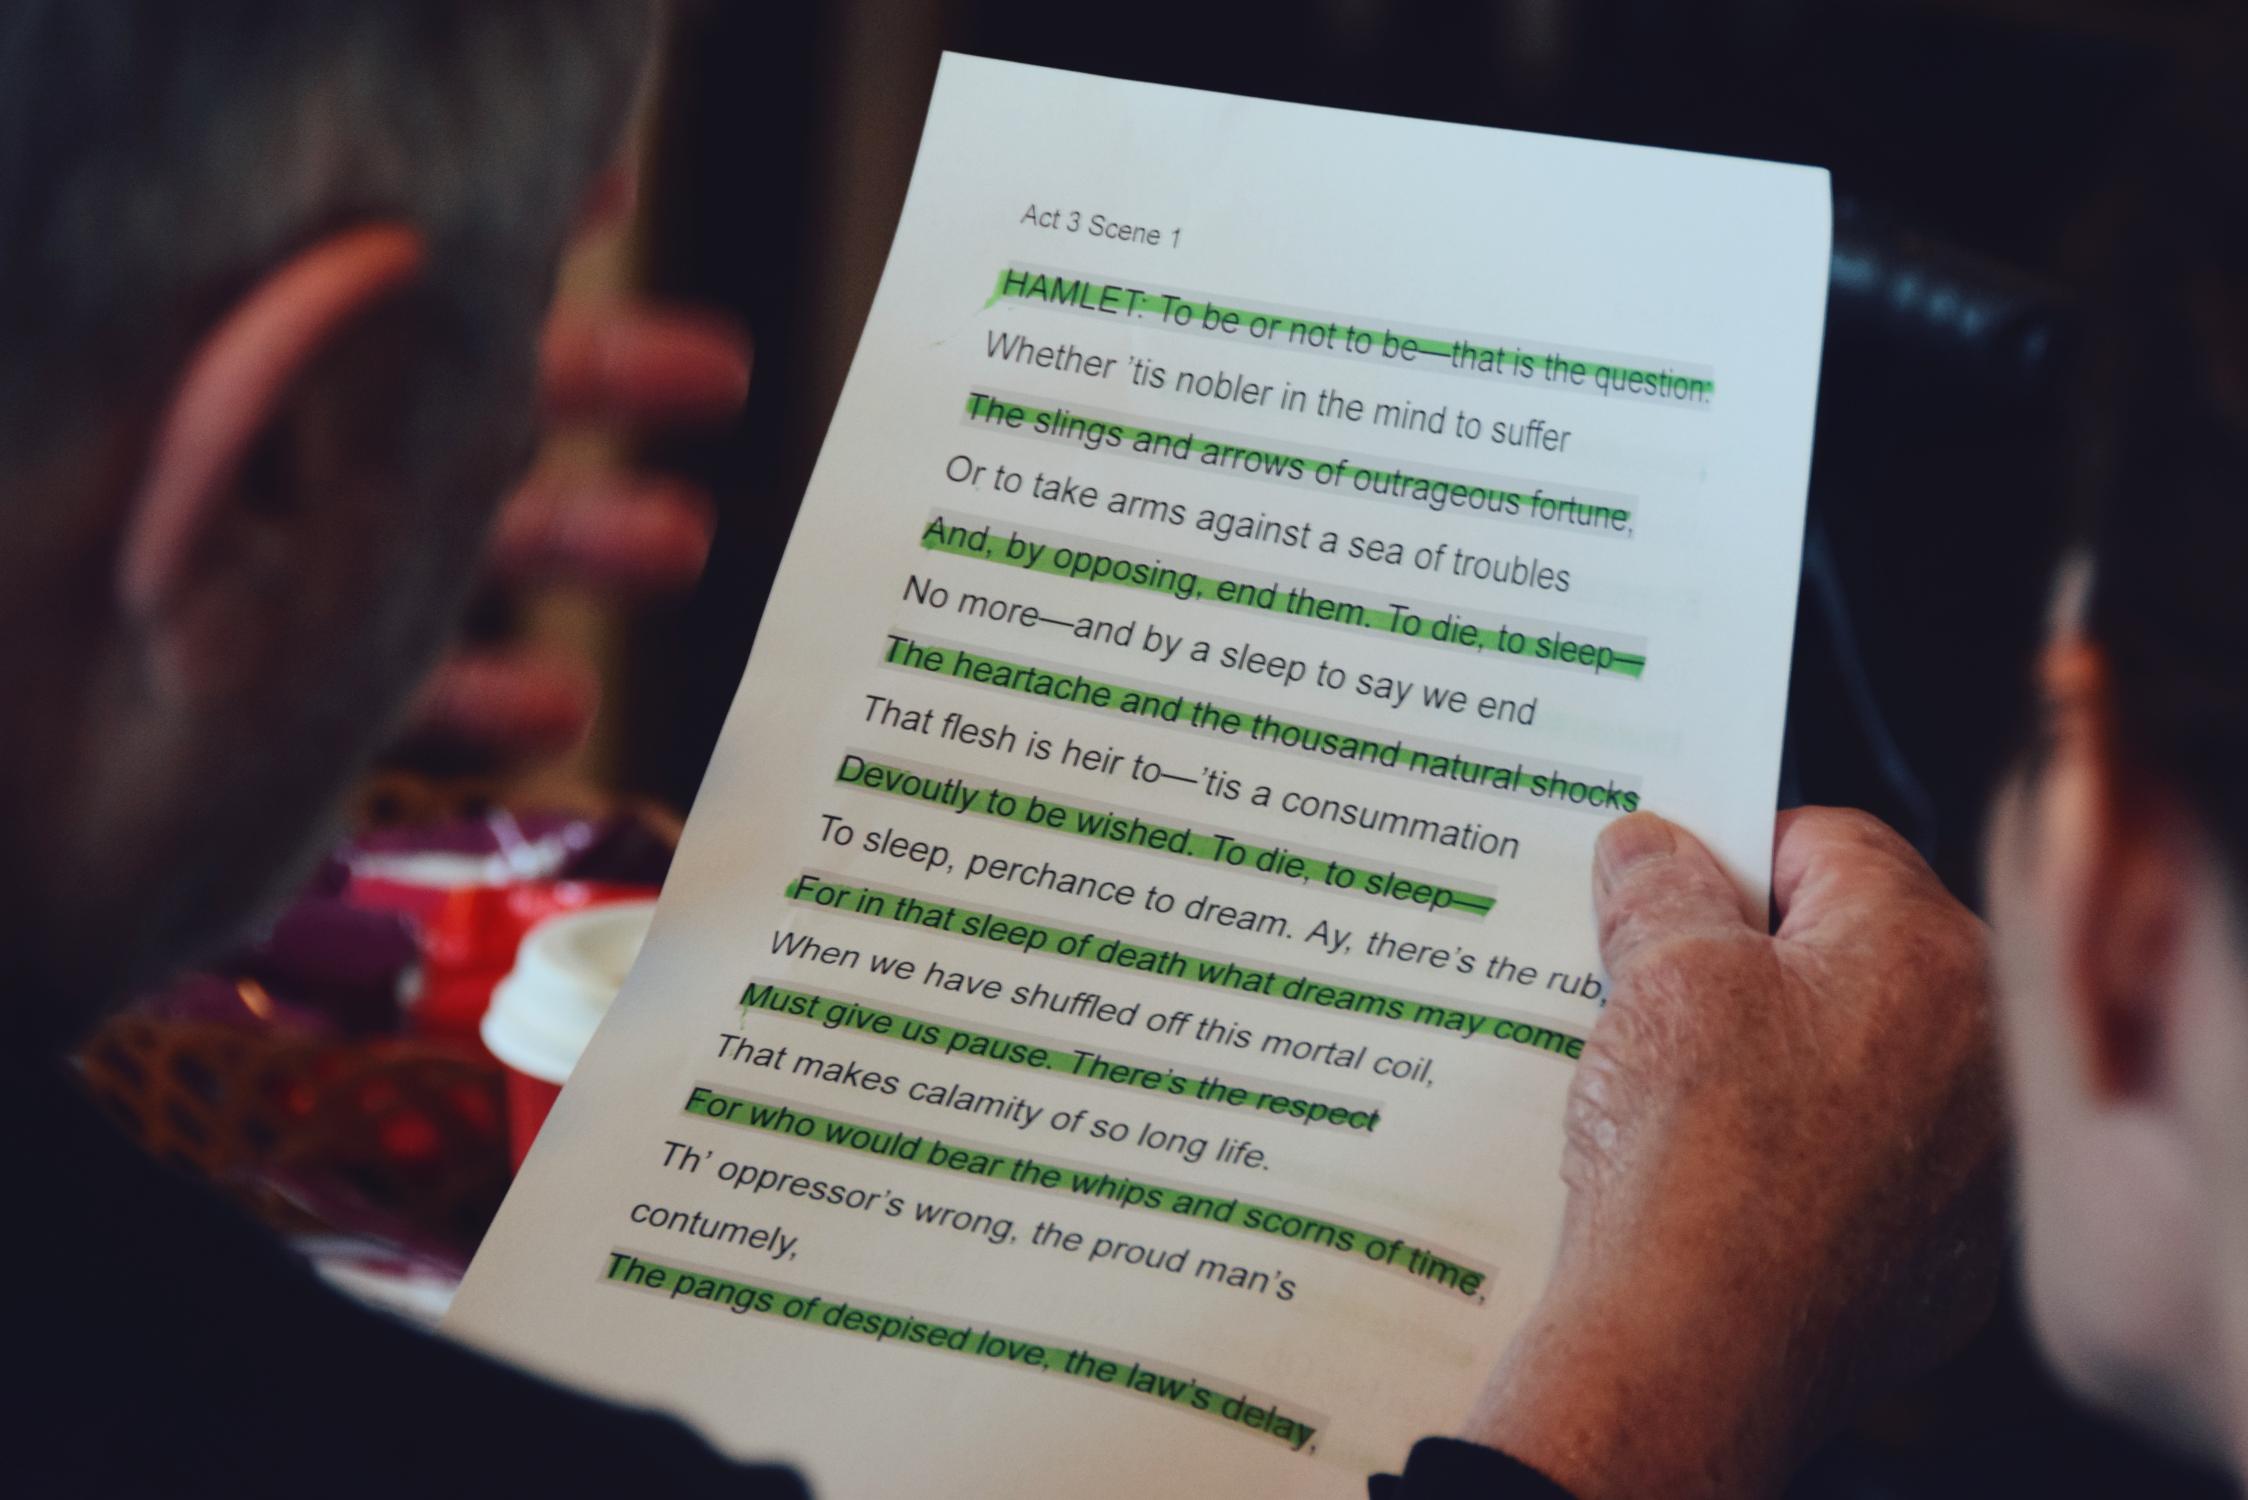 Act 3 Scene 1
HAMLET: To be or not to be—that is the question:
Whether ’tis nobler in the mind to suffer
The slings and arrows of outrageous fortune,
Or to take arms against a sea of troubles
And, by opposing, end them. To die, to sleep—
No more—and by a sleep to say we end
The heartache and the thousand natural shocks
That flesh is heir to—’tis a consummation
Devoutly to be wished. To die, to sleep—
To sleep, perchance to dream. Ay, there’s the rub,
For in that sleep of death what dreams may come
When we have shuffled off this mortal coil,
Must give us pause. There’s the respect
That makes calamity of so long life.
For who would bear the whips and scorns of time,
Th’ oppressor’s wrong, the proud man’s
contumely,
The pangs of despised love, the law’s delay,